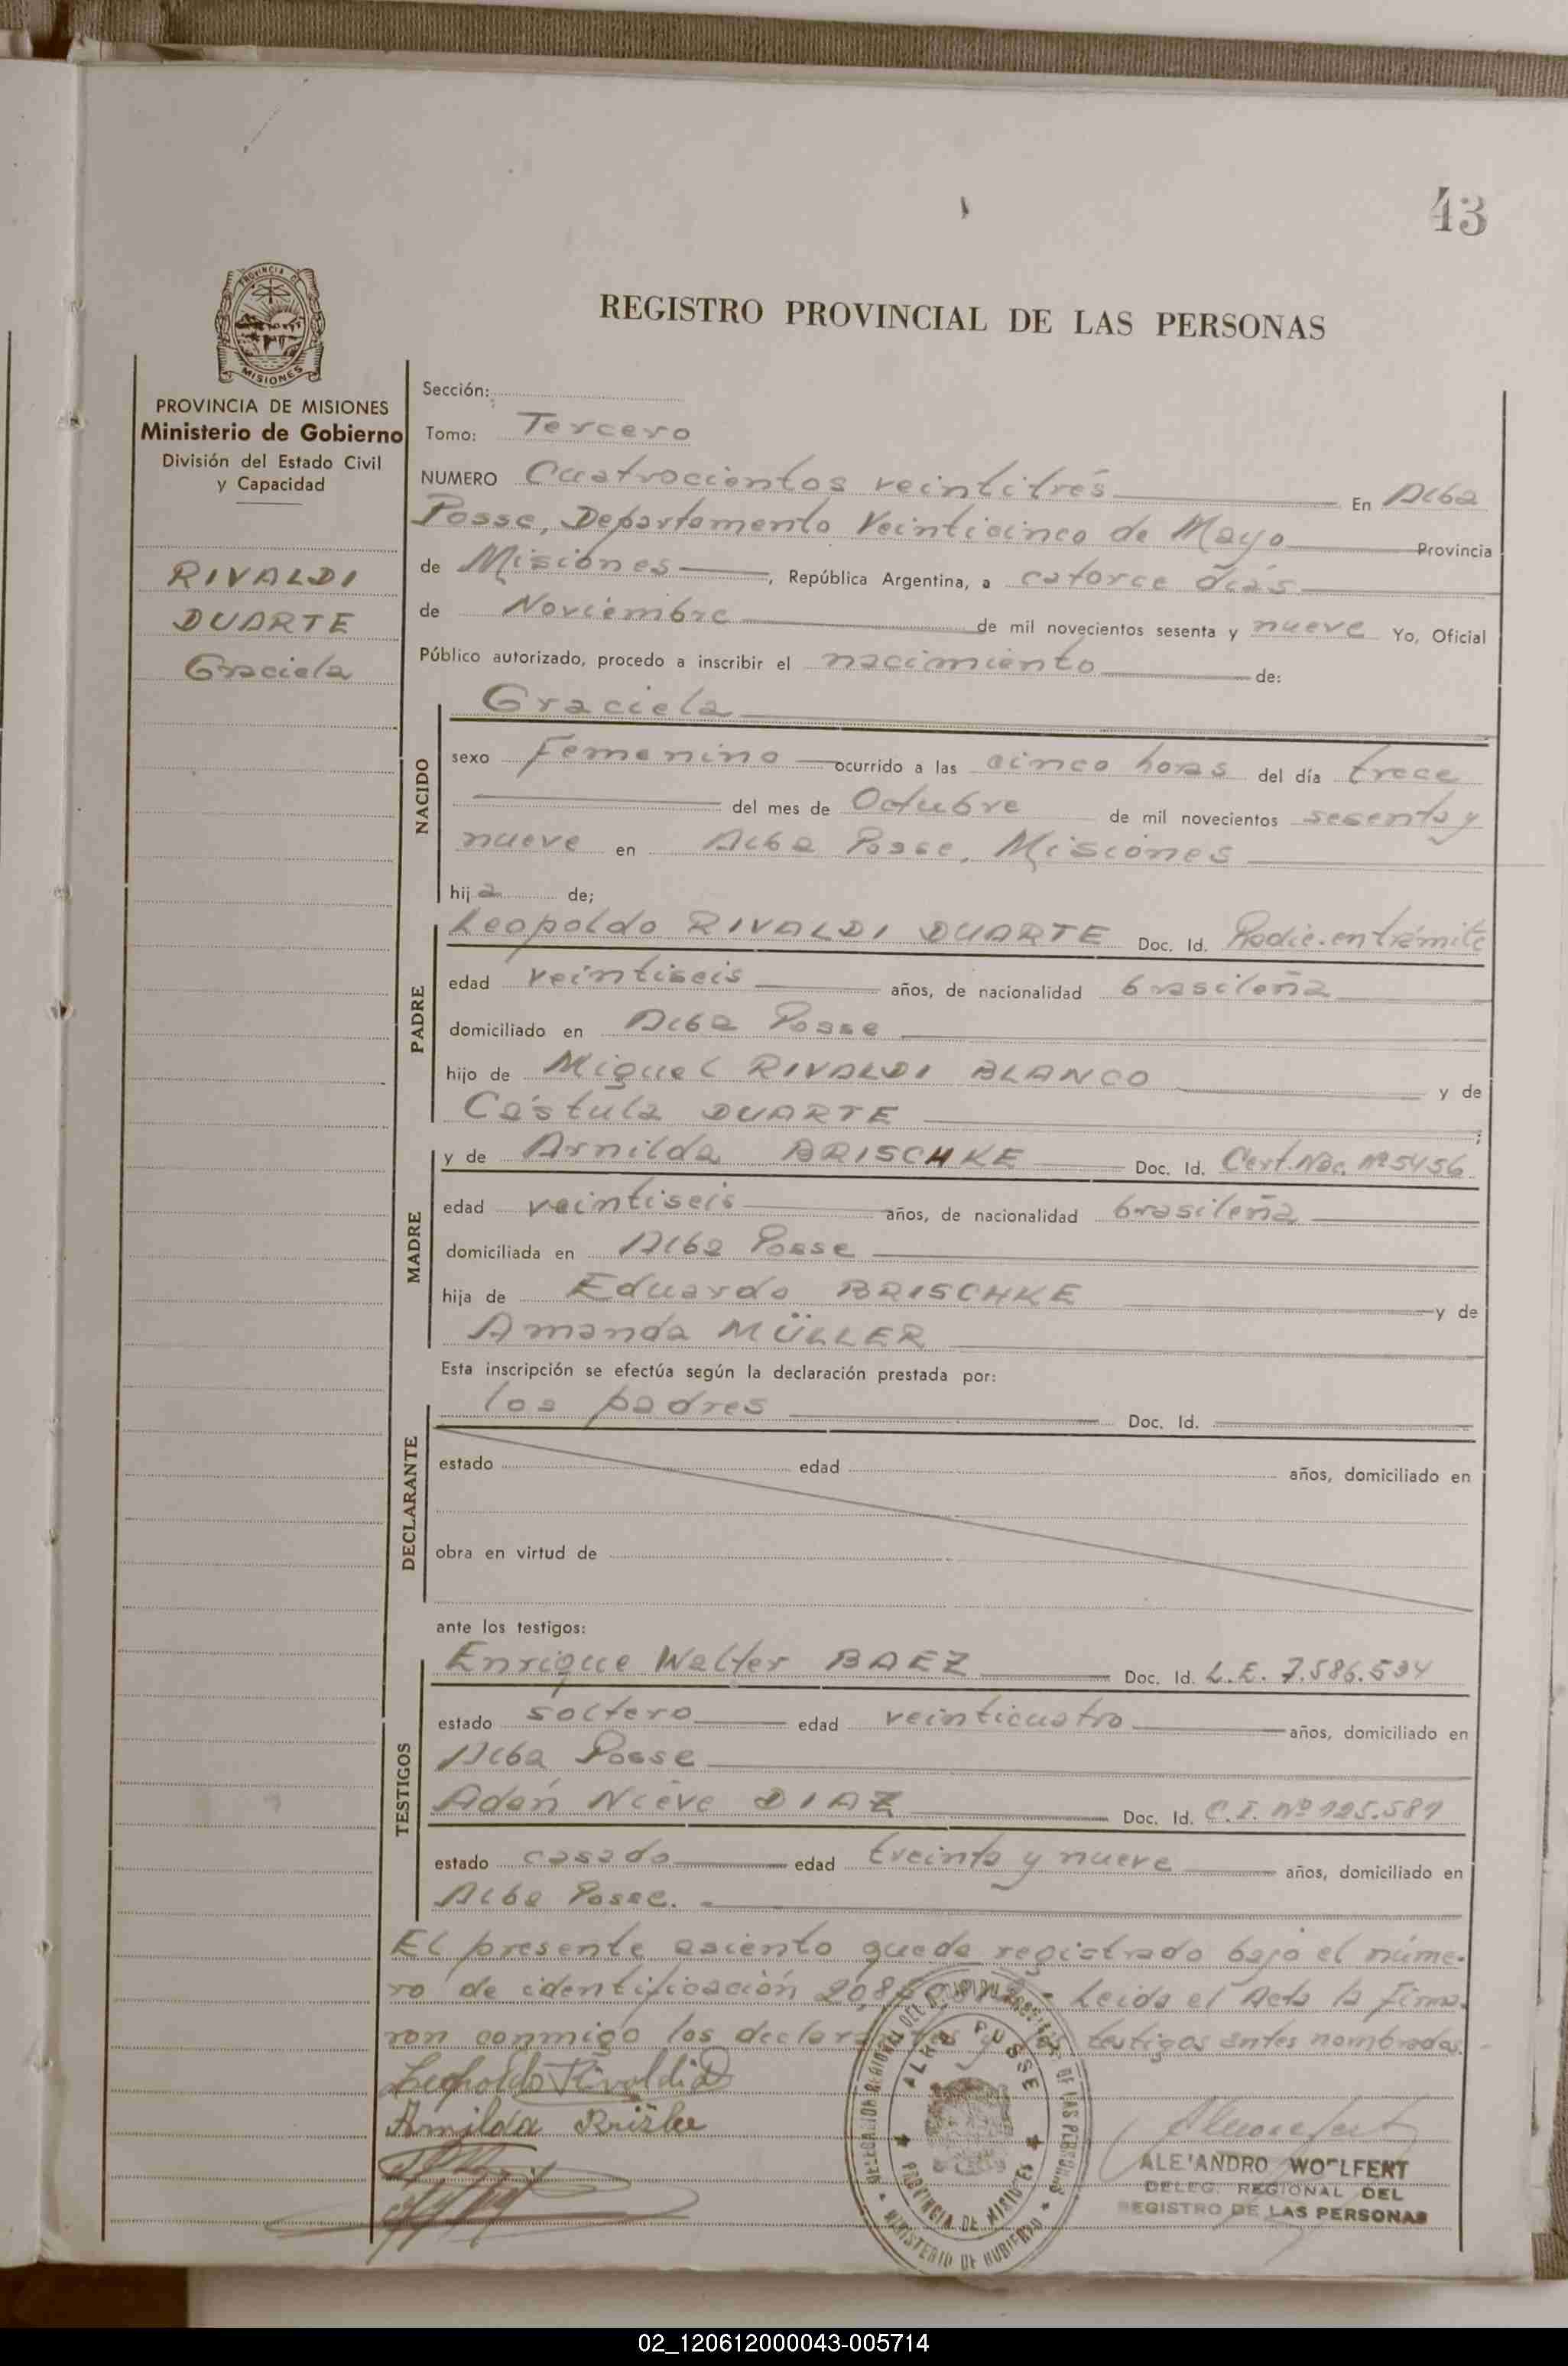 43
PROVINCIA DE
MISIONES
REGISTRO PROVINCIAL DE LAS PERSONAS
PROVINCIA DE MISIONES
Ministerio de Gobierno
División del Estado Civil
y Capacidad
RIVALDI
DUARTE
Graciela
Sección:
Tomo: Tercero
NUMERO Cuatrocientos veintitrés En Alba
Posse, Departamento Veinticinco de Mayo Provincia
de Misiones, República Argentina, a catorce días
de Noviembre de mil novecientos sesenta y nueve Yo, Oficial
Público autorizado, procedo a inscribir el nacimiento de:
NACIDO
Graciela
sexo Femenino ocurrido a las cinco horas del día trece
del mes de Octubre de mil novecientos sesenta y
nueve en Alba Posse, Misiones
hija de;
PADRE
Leopoldo RIVALDI DUARTE Doc. Id. Radic. en trámite
edad veintiseis años, de nacionalidad brasileña
domiciliado en Alba Posse
hijo de Miguel RIVALDI BLANCO y de
Cástula DUARTE ;
MADRE
y de Arnilda BRISCHKE Doc. Id. Cert. Nac. Nº 5456
edad veintiseis años, de nacionalidad brasileña
domiciliada en Alba Posse
hija de Eduardo BRISCHKE y de
Amanda MÜLLER
Esta inscripción se efectúa según la declaración prestada por:
DECLARANTE
los padres Doc. Id.
estado edad años, domiciliado en
obra en virtud de
ante los testigos:
TESTIGOS
Enrique Walter BAEZ Doc. Id. L.E. 7.586.534
estado soltero edad veinticuatro años, domiciliado en
Alba Posse
Adán Nieve DIAZ Doc. Id. C.I. Nº 125.581
estado casado edad treinta y nueve años, domiciliado en
Alba Posse.
El presente asiento queda registrado bajo el núme-
ro de identificación Leida el Acta la firma-
ron conmigo los declarantes y los testigos antes nombrados.
Leopoldo Rivaldi D
Arnilda
DELEGACION REGIONAL DEL REGISTRO PROVINCIAL DE LAS PERSONAS
ALBA POSSE
PROVINCIA DE MISIONES
MINISTERIO DE GOBIERNO
ALEJANDRO WOLFERT
DELEG. REGIONAL DEL
REGISTRO DE LAS PERSONAS
02_120612000043-005714